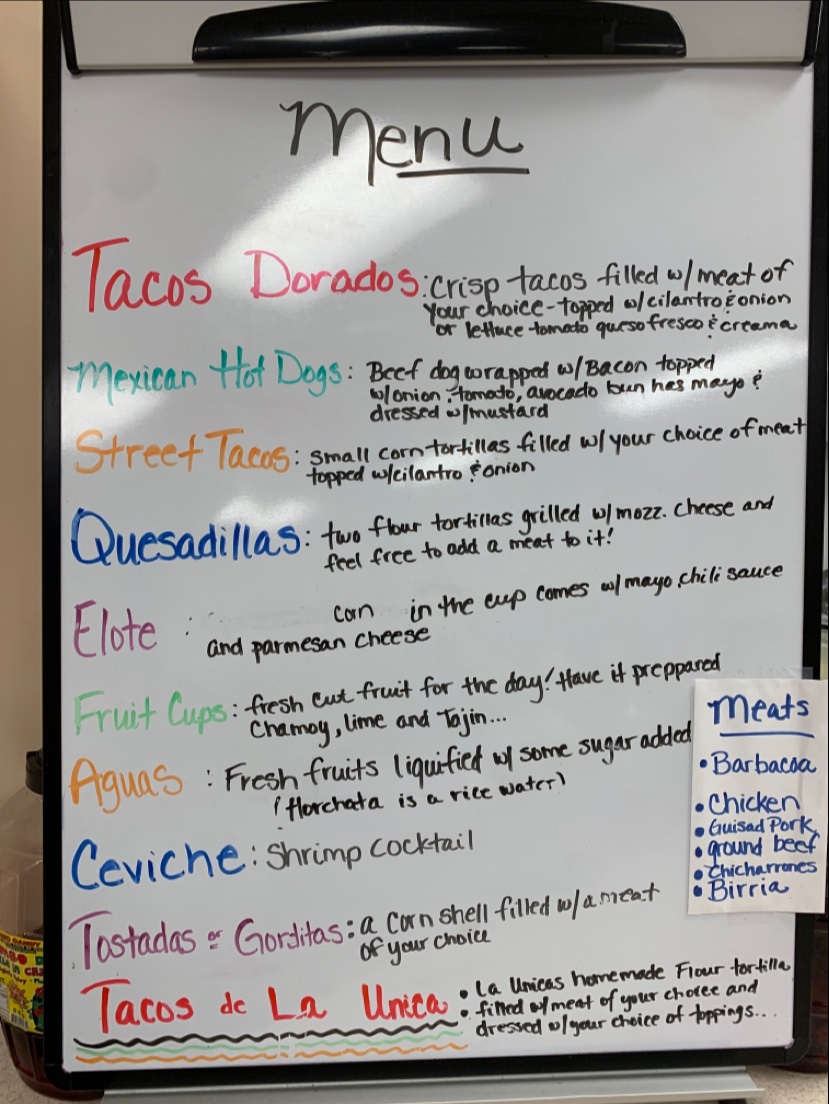 Menu
Tacos Dorados: crisp tacos filled w/meat of
your choice-topped w/cilantro & onion
or lettuce tomato queso fresco & creama
Mexican Hot Dogs: Beef dog wrapped w/Bacon topped
w/onion, tomato, avocado bun has mayo &
dressed w/mustard
Street Tacos: small corn tortillas filled w/your choice of meat
topped w/cilantro & onion
Quesadillas: two flour tortillas grilled w/mozz. cheese and
feel free to add a meat to it!
Elote : corn in the cup comes w/mayo, chili sauce
and parmesan cheese
Fruit Cups: fresh cut fruit for the day! Have it preppared
Chamoy, lime and Tajin...
Aguas : Fresh fruits liquified w/ some sugar added
(Horchata is a rice water)
Ceviche: Shrimp cocktail
Tostadas or Gorditas: a corn shell filled w/a meat
of your choice
Tacos de La Unica: La Unicas homemade Flour tortilla
filled w/meat of your choice and
dressed w/your choice of toppings...
Meats
• Barbacoa
• Chicken
• Guisad Pork
• ground beef
• Chicharrones
• Birria